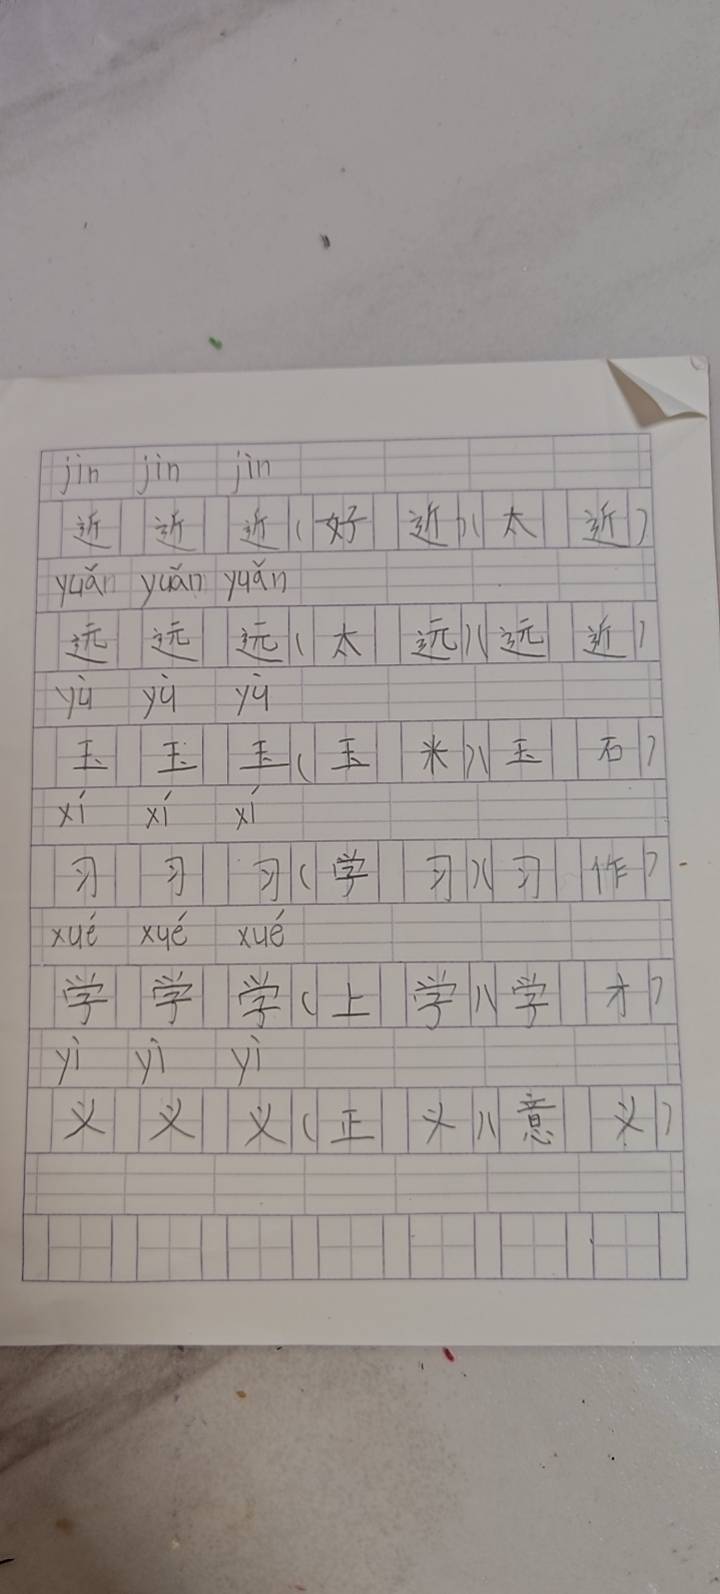 jìn jìn jìn
近 近 近（好 近）（太 近）
yuǎn yuǎn yuǎn
远 远 远（太 远）（远 近）
yù yù yù
玉 玉 玉（玉 米）（玉 石）
xí xí xí
习 习 习（学 习）（习 作）
xué xué xué
学 学 学（上 学）（学 才）
yì yì yì
义 义 义（正 义）（意 义）